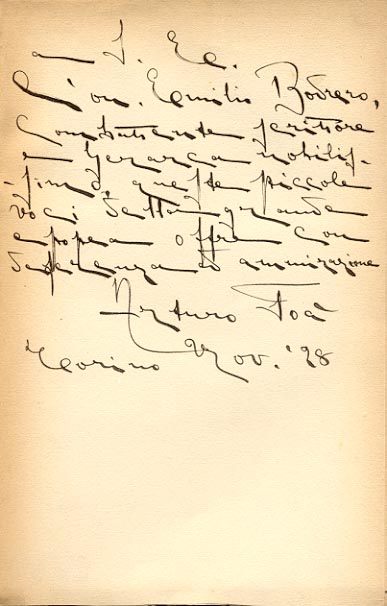 a S. Ec.
l'on. Emilio Bodrero,
combattente scrittore
e gerarca nobilis-
-simo, queste piccole
voci della grande
epopea offre con
deferenza ed ammirazione
Arturo Foà
Torino Nov. '28